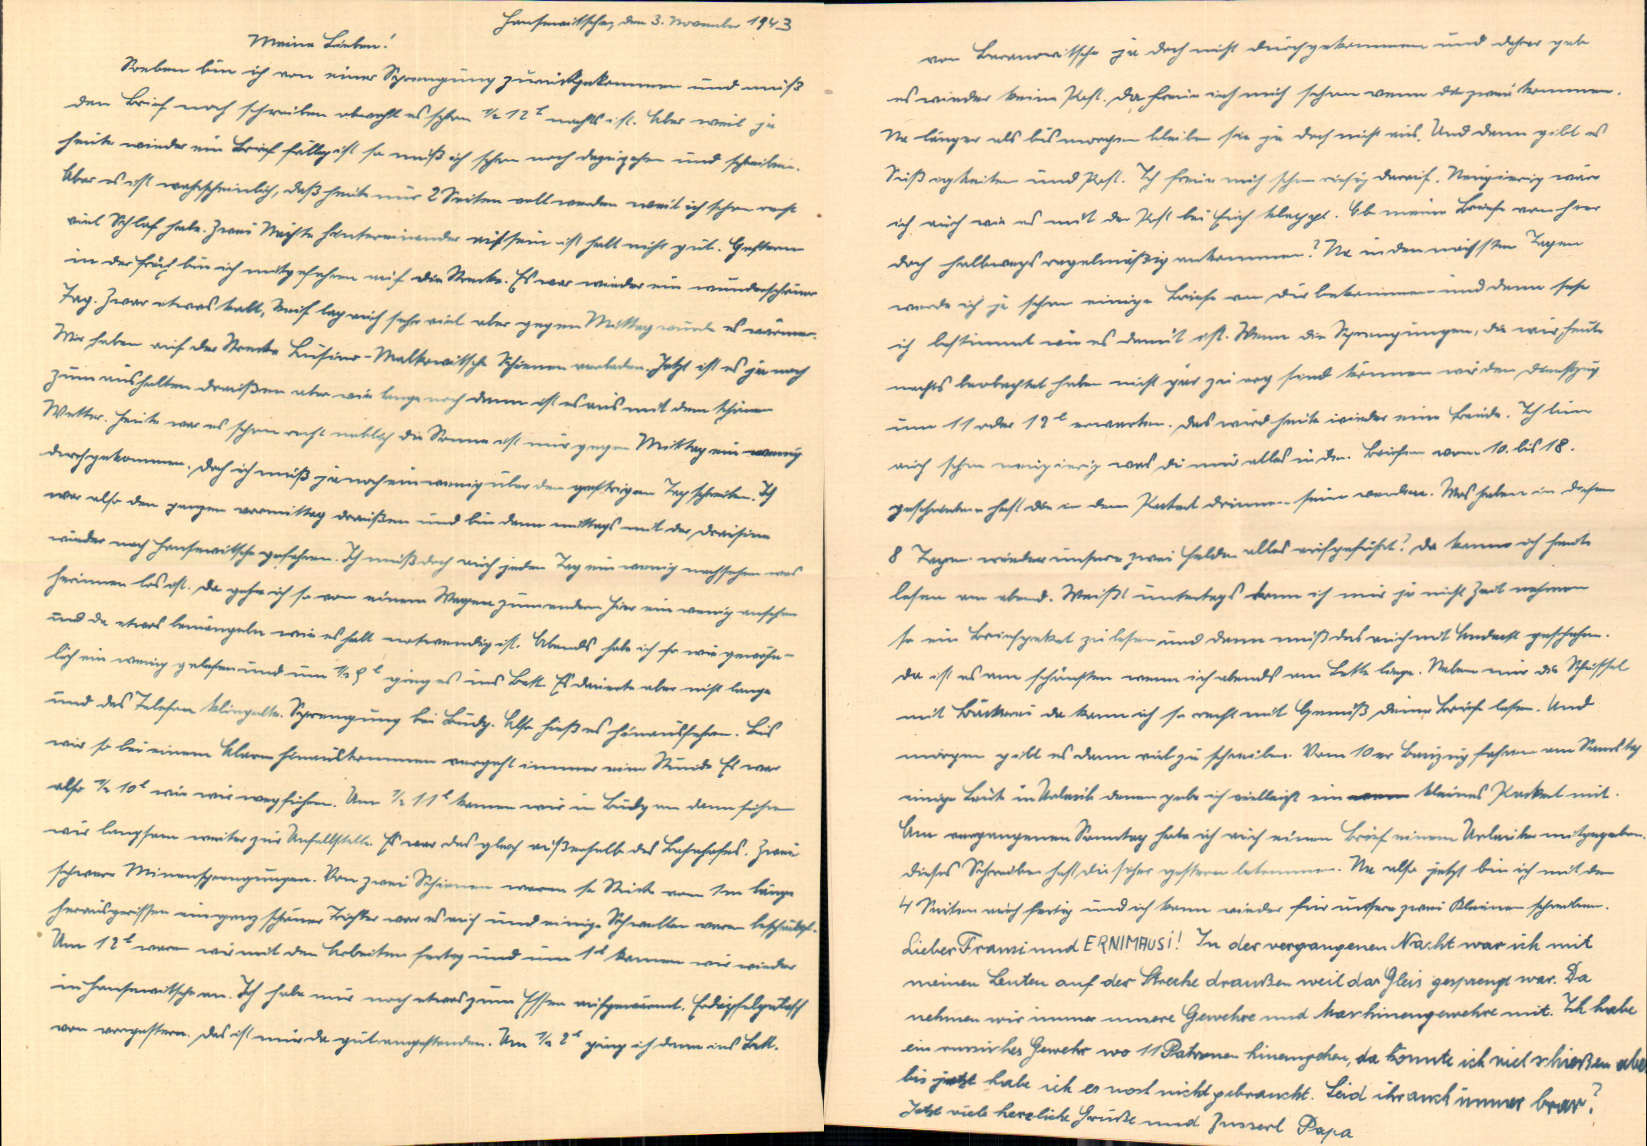 Hansewitsche, den 3. November 1943
Meine Lieben!
Soeben bin ich von einer Sprengung zurückgekommen und muß
den Brief noch schreiben obwohl es schon ½ 12h nachts ist. Aber weil ja
heute wieder ein Brief fällig ist so muß ich schon noch dazugehen und schreiben.
Aber es ist wahrscheinlich, daß heute nur 2 Seiten voll werden weil ich schon recht
viel Schlaf habe. Zwei Nächte hintereinander auf sein ist halt nicht gut. Gestern
in der früh bin ich mitgefahren auf die Strecke. Es war wieder ein wunderschöner
Tag. Zwar etwas kalt, Reif lag auch sehr viel aber gegen Mittag wurde es wärmer.
Wir haben auf der Strecke Lusino-Malkowitsche Schienen verladen. Jetzt ist es ja noch
zum aushalten draußen aber wie lange noch dann ist es aus mit dem schönen
Wetter. Heute war es schon recht neblich die Sonne ist nur gegen Mittag ein wenig
durchgekommen. Doch ich muß ja noch ein wenig über den gestrigen Tag schreiben. Ich
war also den ganzen vormittag draußen und bin dann mittags mit der Draisine
wieder nach Hansewitsche gefahren. Ich muß doch auch jeden Tag ein wenig nachsehen was
herinnen los ist. Da gehe ich so von einem Wagen zum andern hier ein wenig ansehen
und da etwas bemängeln wie es halt notwendig ist. Abends habe ich so wie gewöhn-
lich ein wenig gelesen und um ½ 9h ging es ins Bett. Es dauerte aber nicht lange
und das Telefon klingelte. Sprengung bei Budy. Also hieß es hinausfahren. Bis
wir so bei einem Alarm hinauskommen vergeht immer eine Stunde. Es war
also ½ 10h wie wir wegfuhren. Um ½ 11h kamen wir in Budy an dann fuhren
wir langsam weiter zur Unfallstelle. Es war das gleich außerhalb des Bahnhofes. Zwei
schwere Minensprengungen. Von zwei Schienen waren so Stücke von 1m länge
herausgerissen ein ganz schöner Trichter war es auch und einige Schwellen waren beschädigt.
Um 12h waren wir mit den Arbeiten fertig und um 1h kamen wir wieder
in Hansewitsche an. Ich habe mir noch etwas zum Essen aufgewärmt. Erdäpfelgulasch
von vorgestern. Das ist mir da gut angestanden. Um ½ 2h ging ich dann ins Bett.
von Baranowitsche ja doch nicht durchgekommen und daher gab
es wieder keine Post. Da freue ich mich schon wenn die zwei kommen.
Na länger als bis morgen bleiben sie ja doch nicht aus. Und dann gibt es
Süßigkeiten und Post. Ich freue mich schon richtig darauf. Neugierig wäre
ich auch wie es mit der Post bei Euch klappt. Ob meine Briefe von hier
doch halbwegs regelmäßig ankommen? Na in den nächsten Tagen
werde ich ja schon einige Briefe von Dir bekommen und dann sehe
ich bestimmt wie es damit ist. Wenn die Sprengungen, die wir heute
nachts beobachtet haben nicht gar zu arg sind können wir den Dienstzug
um 11 oder 12h erwarten. Das wird heute wieder eine Freude. Ich bin
auch schon neugierig was du mir alles in den Briefen vom 10. bis 18.
geschrieben hast die in dem Packet drinnen sein werden. Was haben in diesen
8 Tagen wieder unsere zwei Helden alles aufgeführt? Da kann ich heute
lesen am abend. Weißt untertags kann ich mir ja nicht Zeit nehmen
so ein Briefpaket zu lesen und dann muß das auch mit Andacht geschehen.
Da ist es am schönsten wenn ich abends am Bette liege. Neben mir die Schüssel
mit Bäckerei da kann ich so recht mit Genuß deine Briefe lesen. Und
morgen gibt es dann viel zu schreiben. Vom 10er Bauzug fahren am Samstag
einige Leute in Urlaub denen gebe ich vielleicht ein kleines Packet mit.
Am vergangenen Sonntag habe ich auch einen Brief einem Urlauber mitgegeben.
Dieses Schreiben hast du sicher gestern bekommen. Na also jetzt bin ich mit den
4 Seiten auch fertig und ich kann wieder für unsere zwei Kleinen schreiben.
Lieber Franzi und ERNIMAUSI! In der vergangenen Nacht war ich mit
meinen Leuten auf der Strecke draußen weil das Gleis gesprengt war. Da
nehmen wir immer unsere Gewehre und Maschinengewehre mit. Ich habe
ein russisches Gewehr wo 11 Patronen hineingehen, da könnte ich viel schießen aber
bis jetzt habe ich es noch nicht gebraucht. Seid ihr auch immer brav?
Jetzt viele herzliche Grüße und Busserl Papa